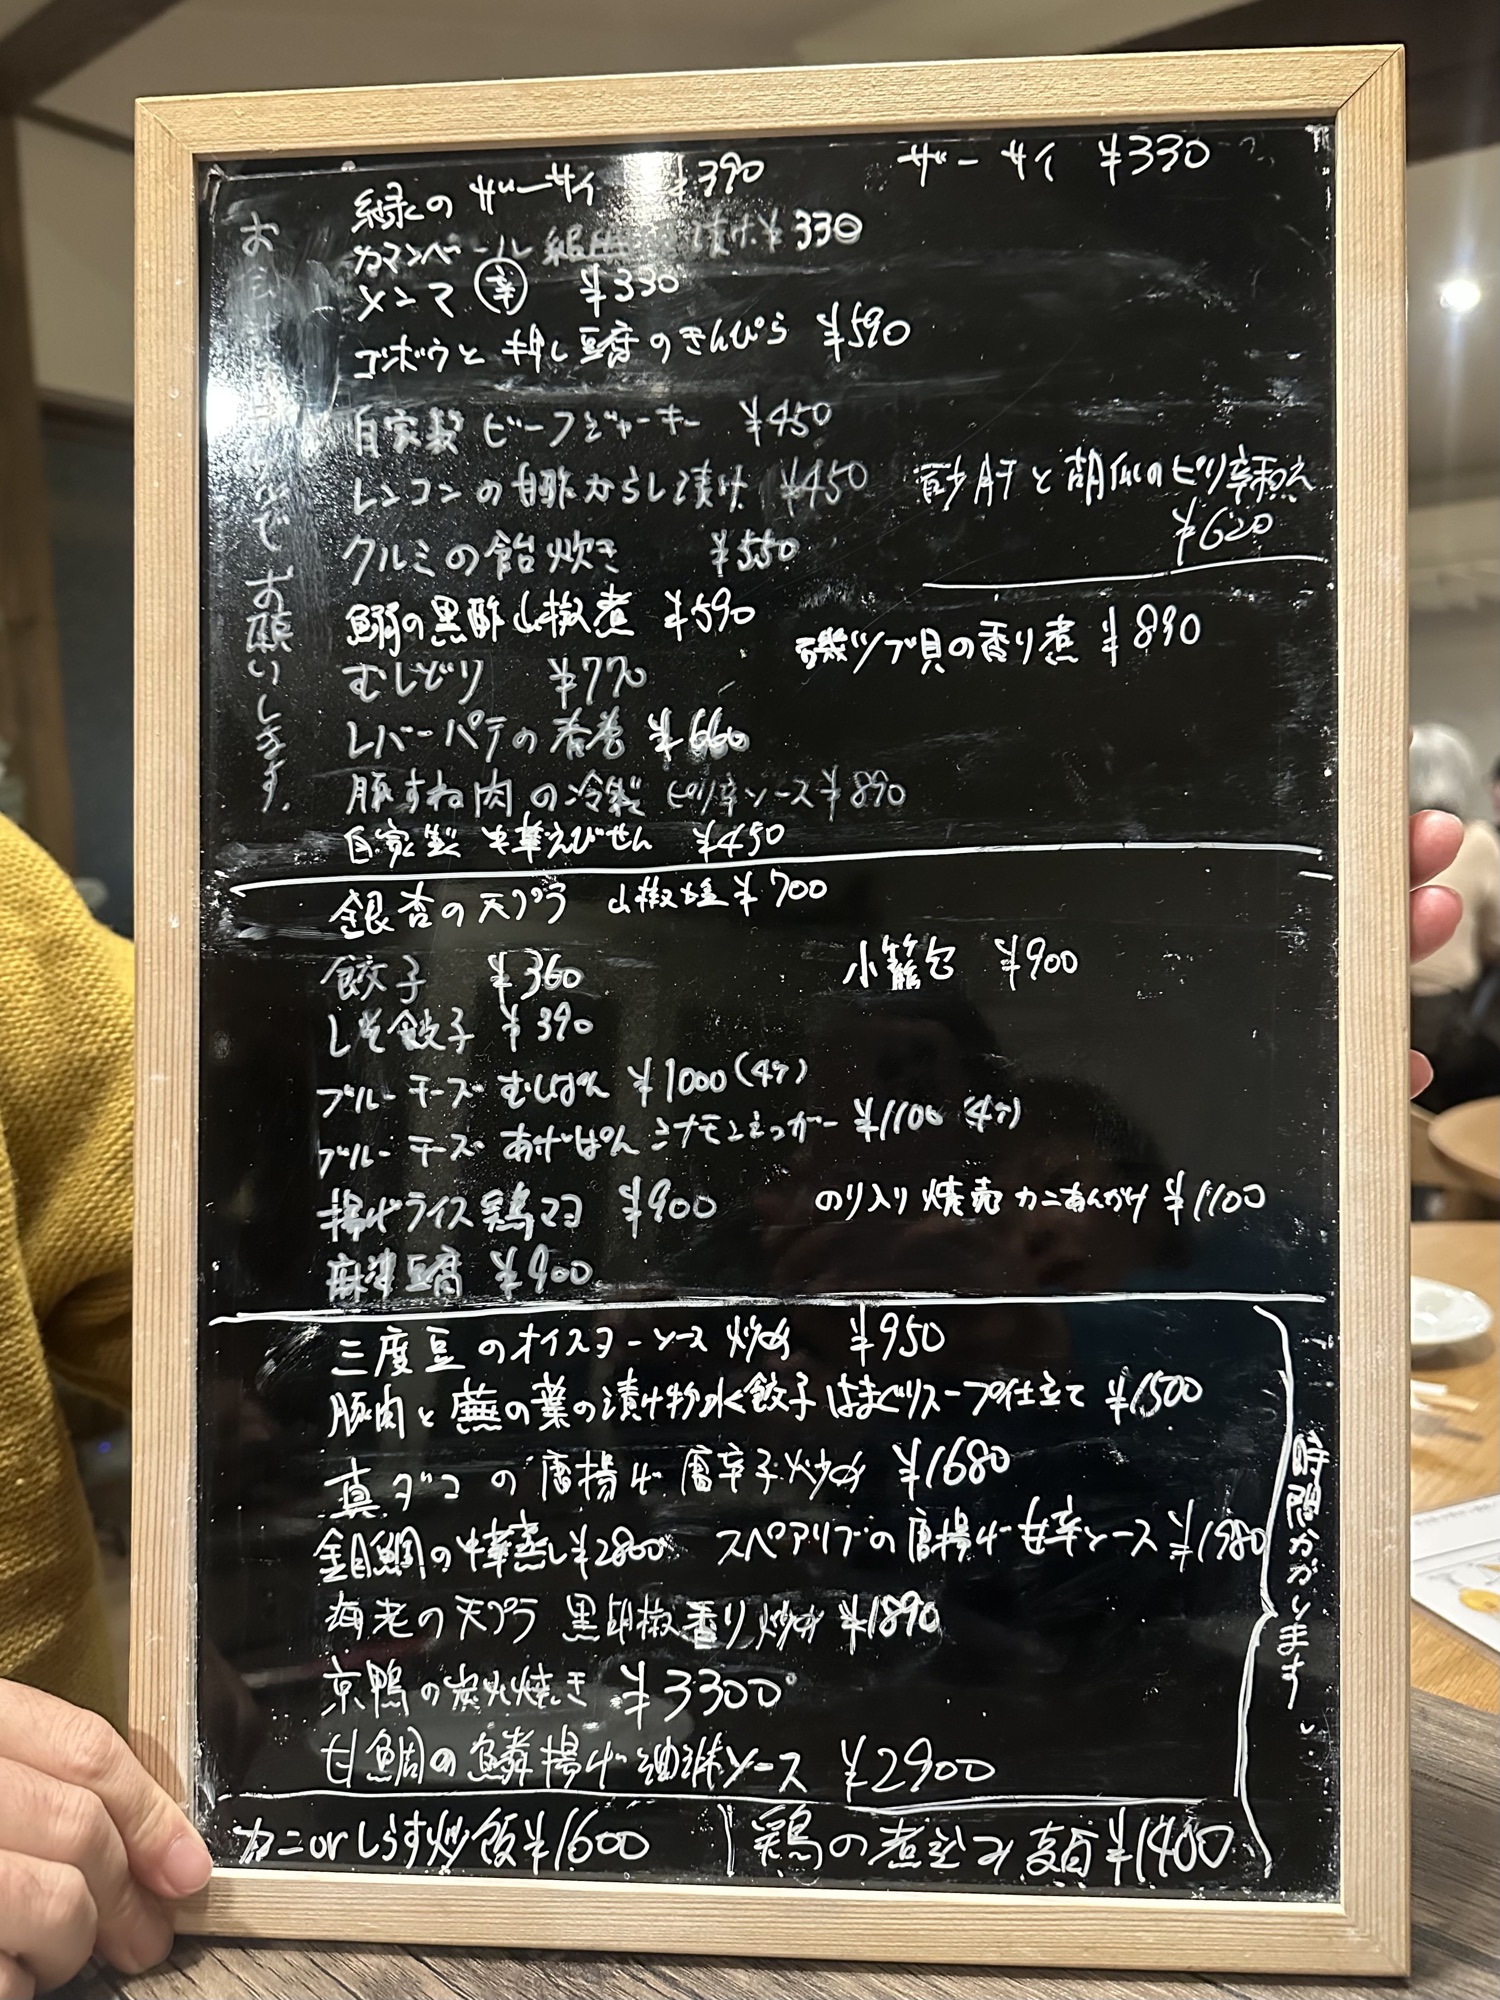 緑のザーサイ ¥390 ザーサイ ¥330
カマンベール 漬け ¥330
メンマ 辛 ¥330
ゴボウと押し豆腐のきんぴら ¥590
自家製ビーフジャーキー ¥450
レンコンの甘酢からし漬け ¥450
砂肝と胡瓜のピリ辛和え
¥620
クルミの飴炊き ¥550
鰯の黒酢山椒煮 ¥590
磯ツブ貝の香り煮 ¥890
むしどり ¥770
レバーパテの春巻 ¥660
豚すね肉の冷製 ピリ辛ソース ¥890
自家製 中華えびせん ¥450
お で お願いします。
銀杏の天プラ 山椒塩 ¥700
餃子 ¥360
小籠包 ¥900
しそ餃子 ¥390
ブルーチーズ むしぱん ¥1000(4ケ)
ブルーチーズ あげぱん シナモンシュガー ¥1100(4ケ)
揚げライス 鶏マヨ ¥900
のり入り焼売 カニあんかけ ¥1100
麻婆豆腐 ¥900
三度豆のオイスターソース炒め ¥950
豚肉と蕪の葉の漬け物水餃子 はまぐりスープ仕立て ¥1500
真ダコの唐揚げ 唐辛子炒め ¥1680
金目鯛の中華蒸し ¥2800 スペアリブの唐揚げ 甘辛ソース ¥1980
海老の天プラ 黒胡椒香り炒め ¥1890
京鴨の炭火焼き ¥3300
甘鯛の鱗揚げ 油淋ソース ¥2900
時間かかります。
カニorしらす炒飯 ¥1600
鶏の煮込み麺 ¥1400